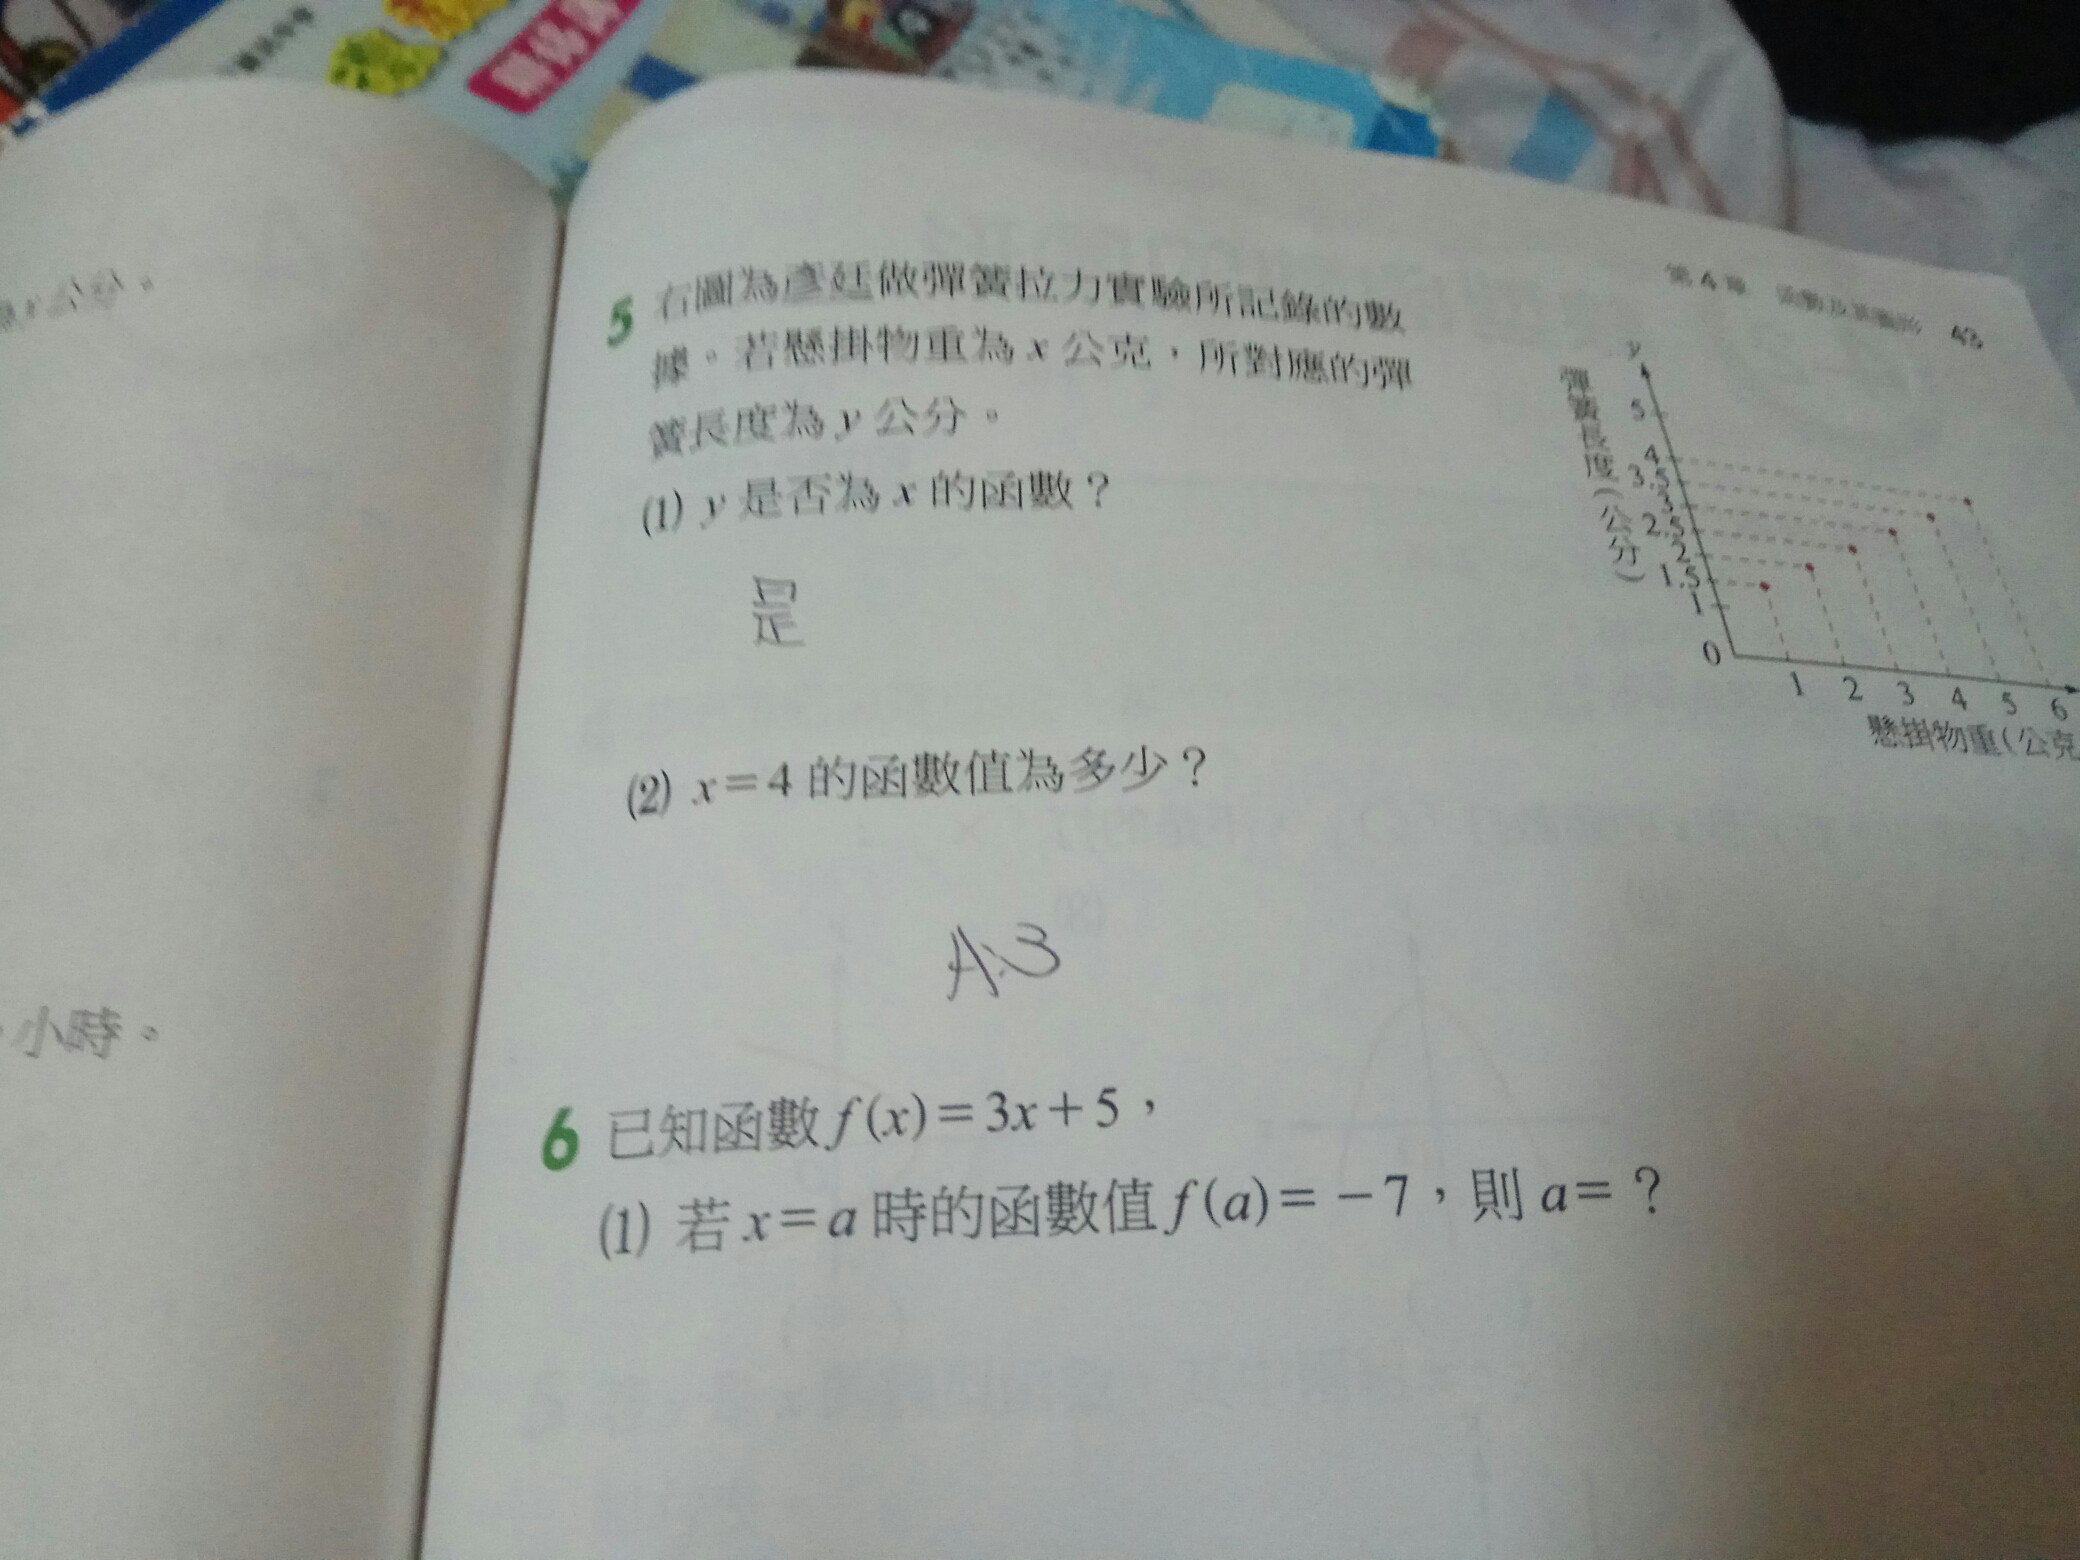 第4章 函數及其圖形 43
5 右圖為彥廷做彈簧拉力實驗所記錄的數
據。若懸掛物重為 x 公克，所對應的彈
簧長度為 y 公分。
(1) y 是否為 x 的函數？
是
(2) x＝4 的函數值為多少？
A:3
y
彈簧長度(公分)
5
4
3.5
3
2.5
2
1.5
1
0
1 2 3 4 5 6
懸掛物重(公克
6 已知函數 f(x)＝3x＋5，
(1) 若 x＝a 時的函數值 f(a)＝－7，則 a＝？
小時。